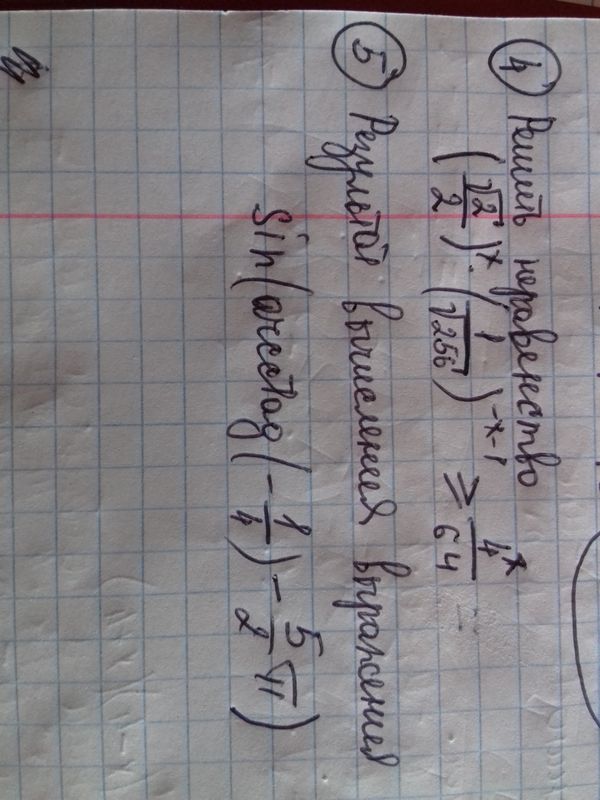 ④ Решить неравенство
(√2/2)^x · (1/√256)^(-x-1) ≥ 4^x/64
⑤ Результат вычисления выражения
sin(arcctg(-1/4) - 5/2 π)